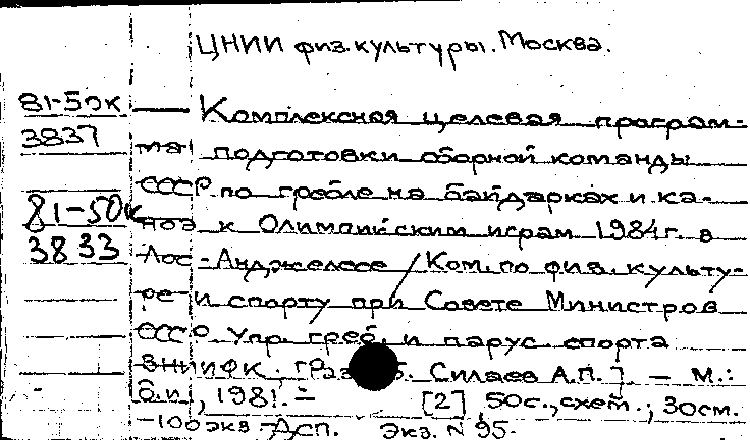 ЦНИИ физ.культуры. Москва.
81-50к
3837
Комплексная целевая програм-
ма подготовки сборной команды
СССР по гребле на байдарках и ка-
81-50к
3833
ноэ к Олимпийским играм 1984г. в
Лос-Анджелесе / Ком. по физ. культу-
ре и спорту при Совете Министров
СССР. Упр. греб. и парус. спорта
ВНИИФК. Силаев А.П. ]. — М.:
б.и., 1981. - [2], 50с., схем.; 30см.
-100экз -Дсп. Экз. N 95.